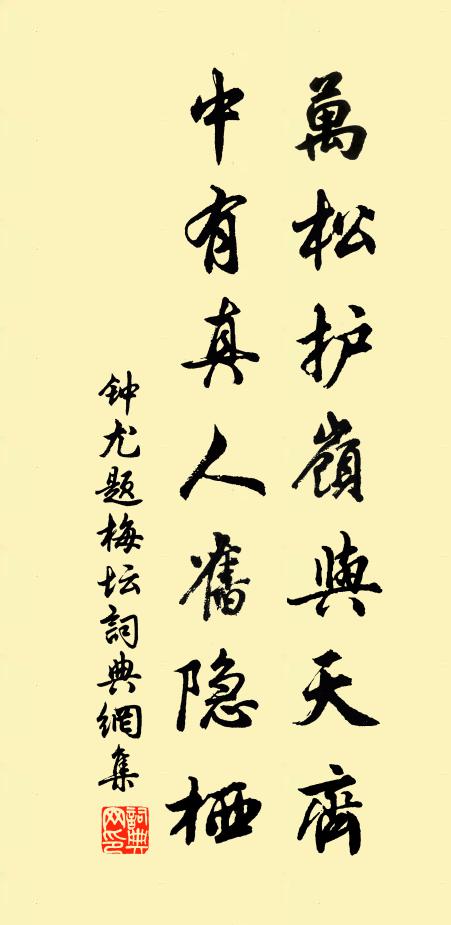 萬松护嶺與天齊
中有真人舊隐栖
钟尤题梅坛詞典網集
詞典網印